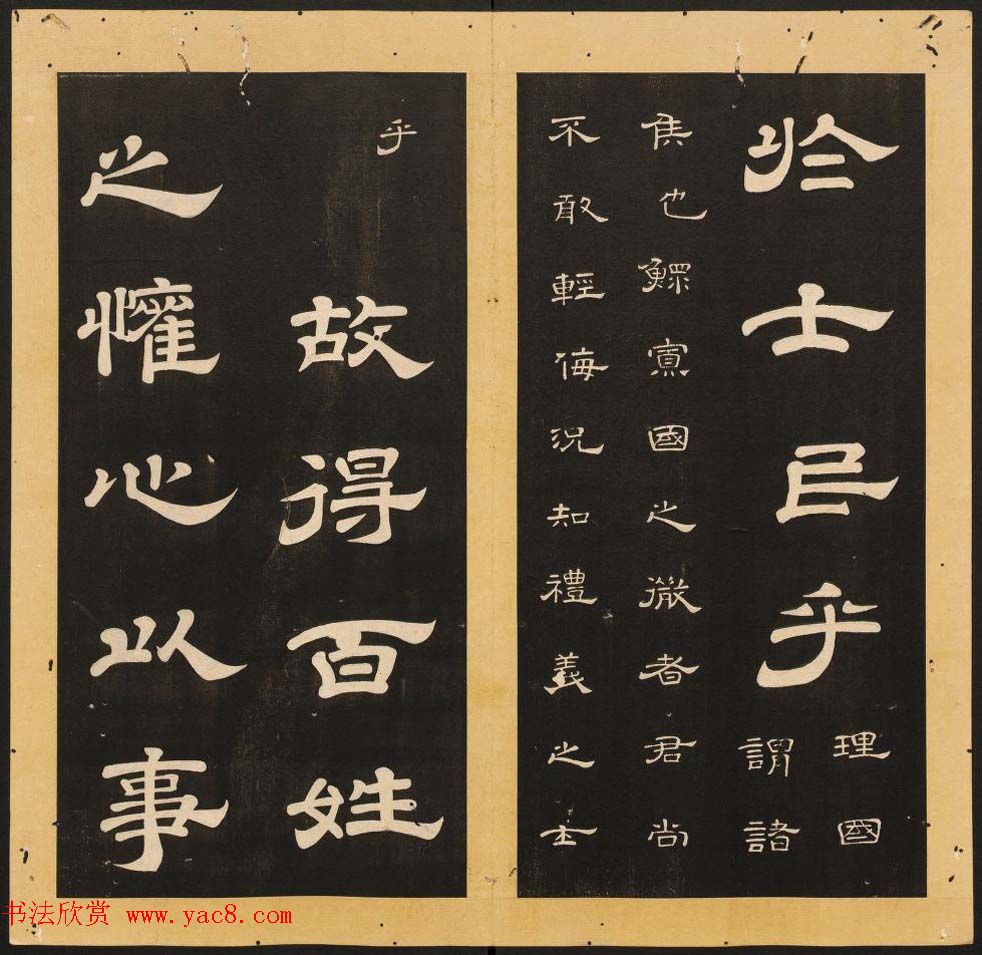 於士民乎
理國
謂諸
侯也鰥寡國之微者君尚
不敢輕侮況知禮義之士
乎
故得百姓
之懽心以事
书法欣赏 www.yac8.com